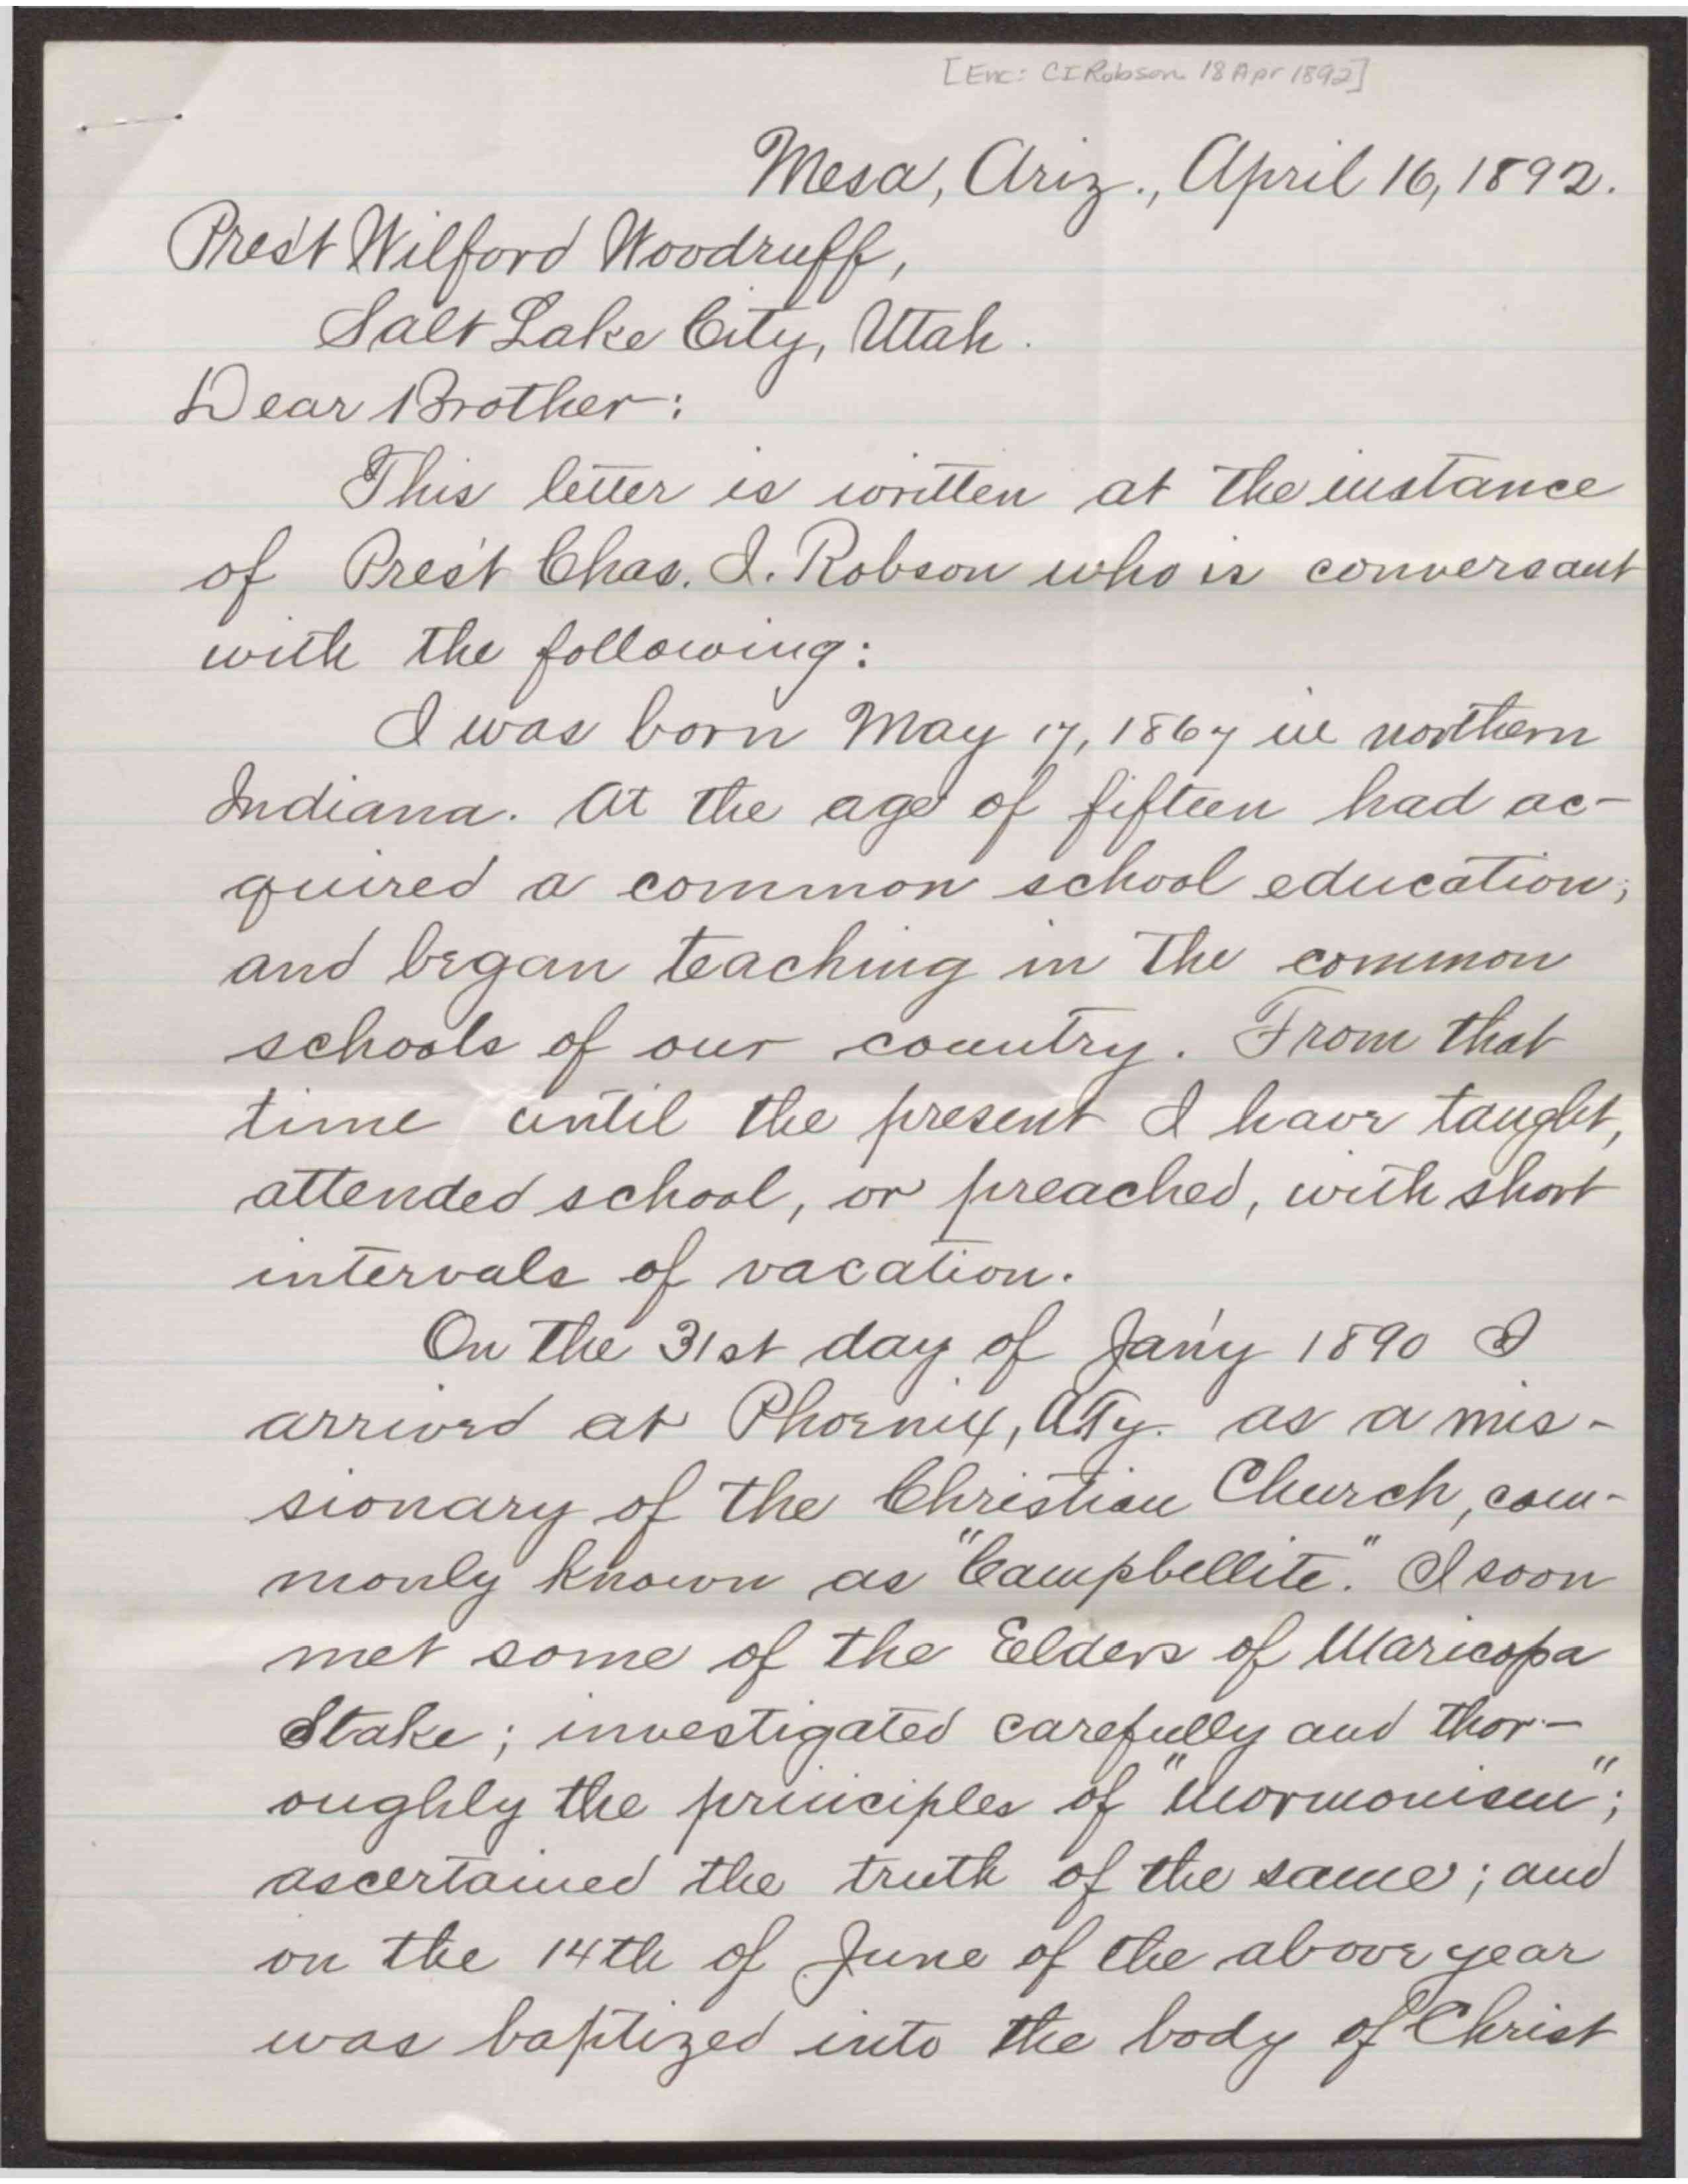 [Enc: CI Robson 18 Apr 1892]
Mesa, Ariz., April 16, 1892.
Pres't Wilford Woodruff,
Salt Lake City, Utah.
Dear Brother:
This letter is written at the instance
of Pres't Chas. I. Robson who is conversant
with the following:
I was born May 17, 1867 in northern
Indiana. At the age of fifteen had ac-
quired a common school education;
and began teaching in the common
schools of our country. From that
time until the present I have taught,
attended school, or preached, with short
intervals of vacation.
On the 31st day of Jan'y 1890 I
arrived at Phoenix, A.Ty. as a mis-
sionary of the Christian Church, com-
monly known as "Campbellite." I soon
met some of the Elders of Maricopa
Stake; investigated carefully and thor-
oughly the principles of "Mormonism";
ascertained the truth of the same; and
on the 14th of June of the above year
was baptized into the body of Christ